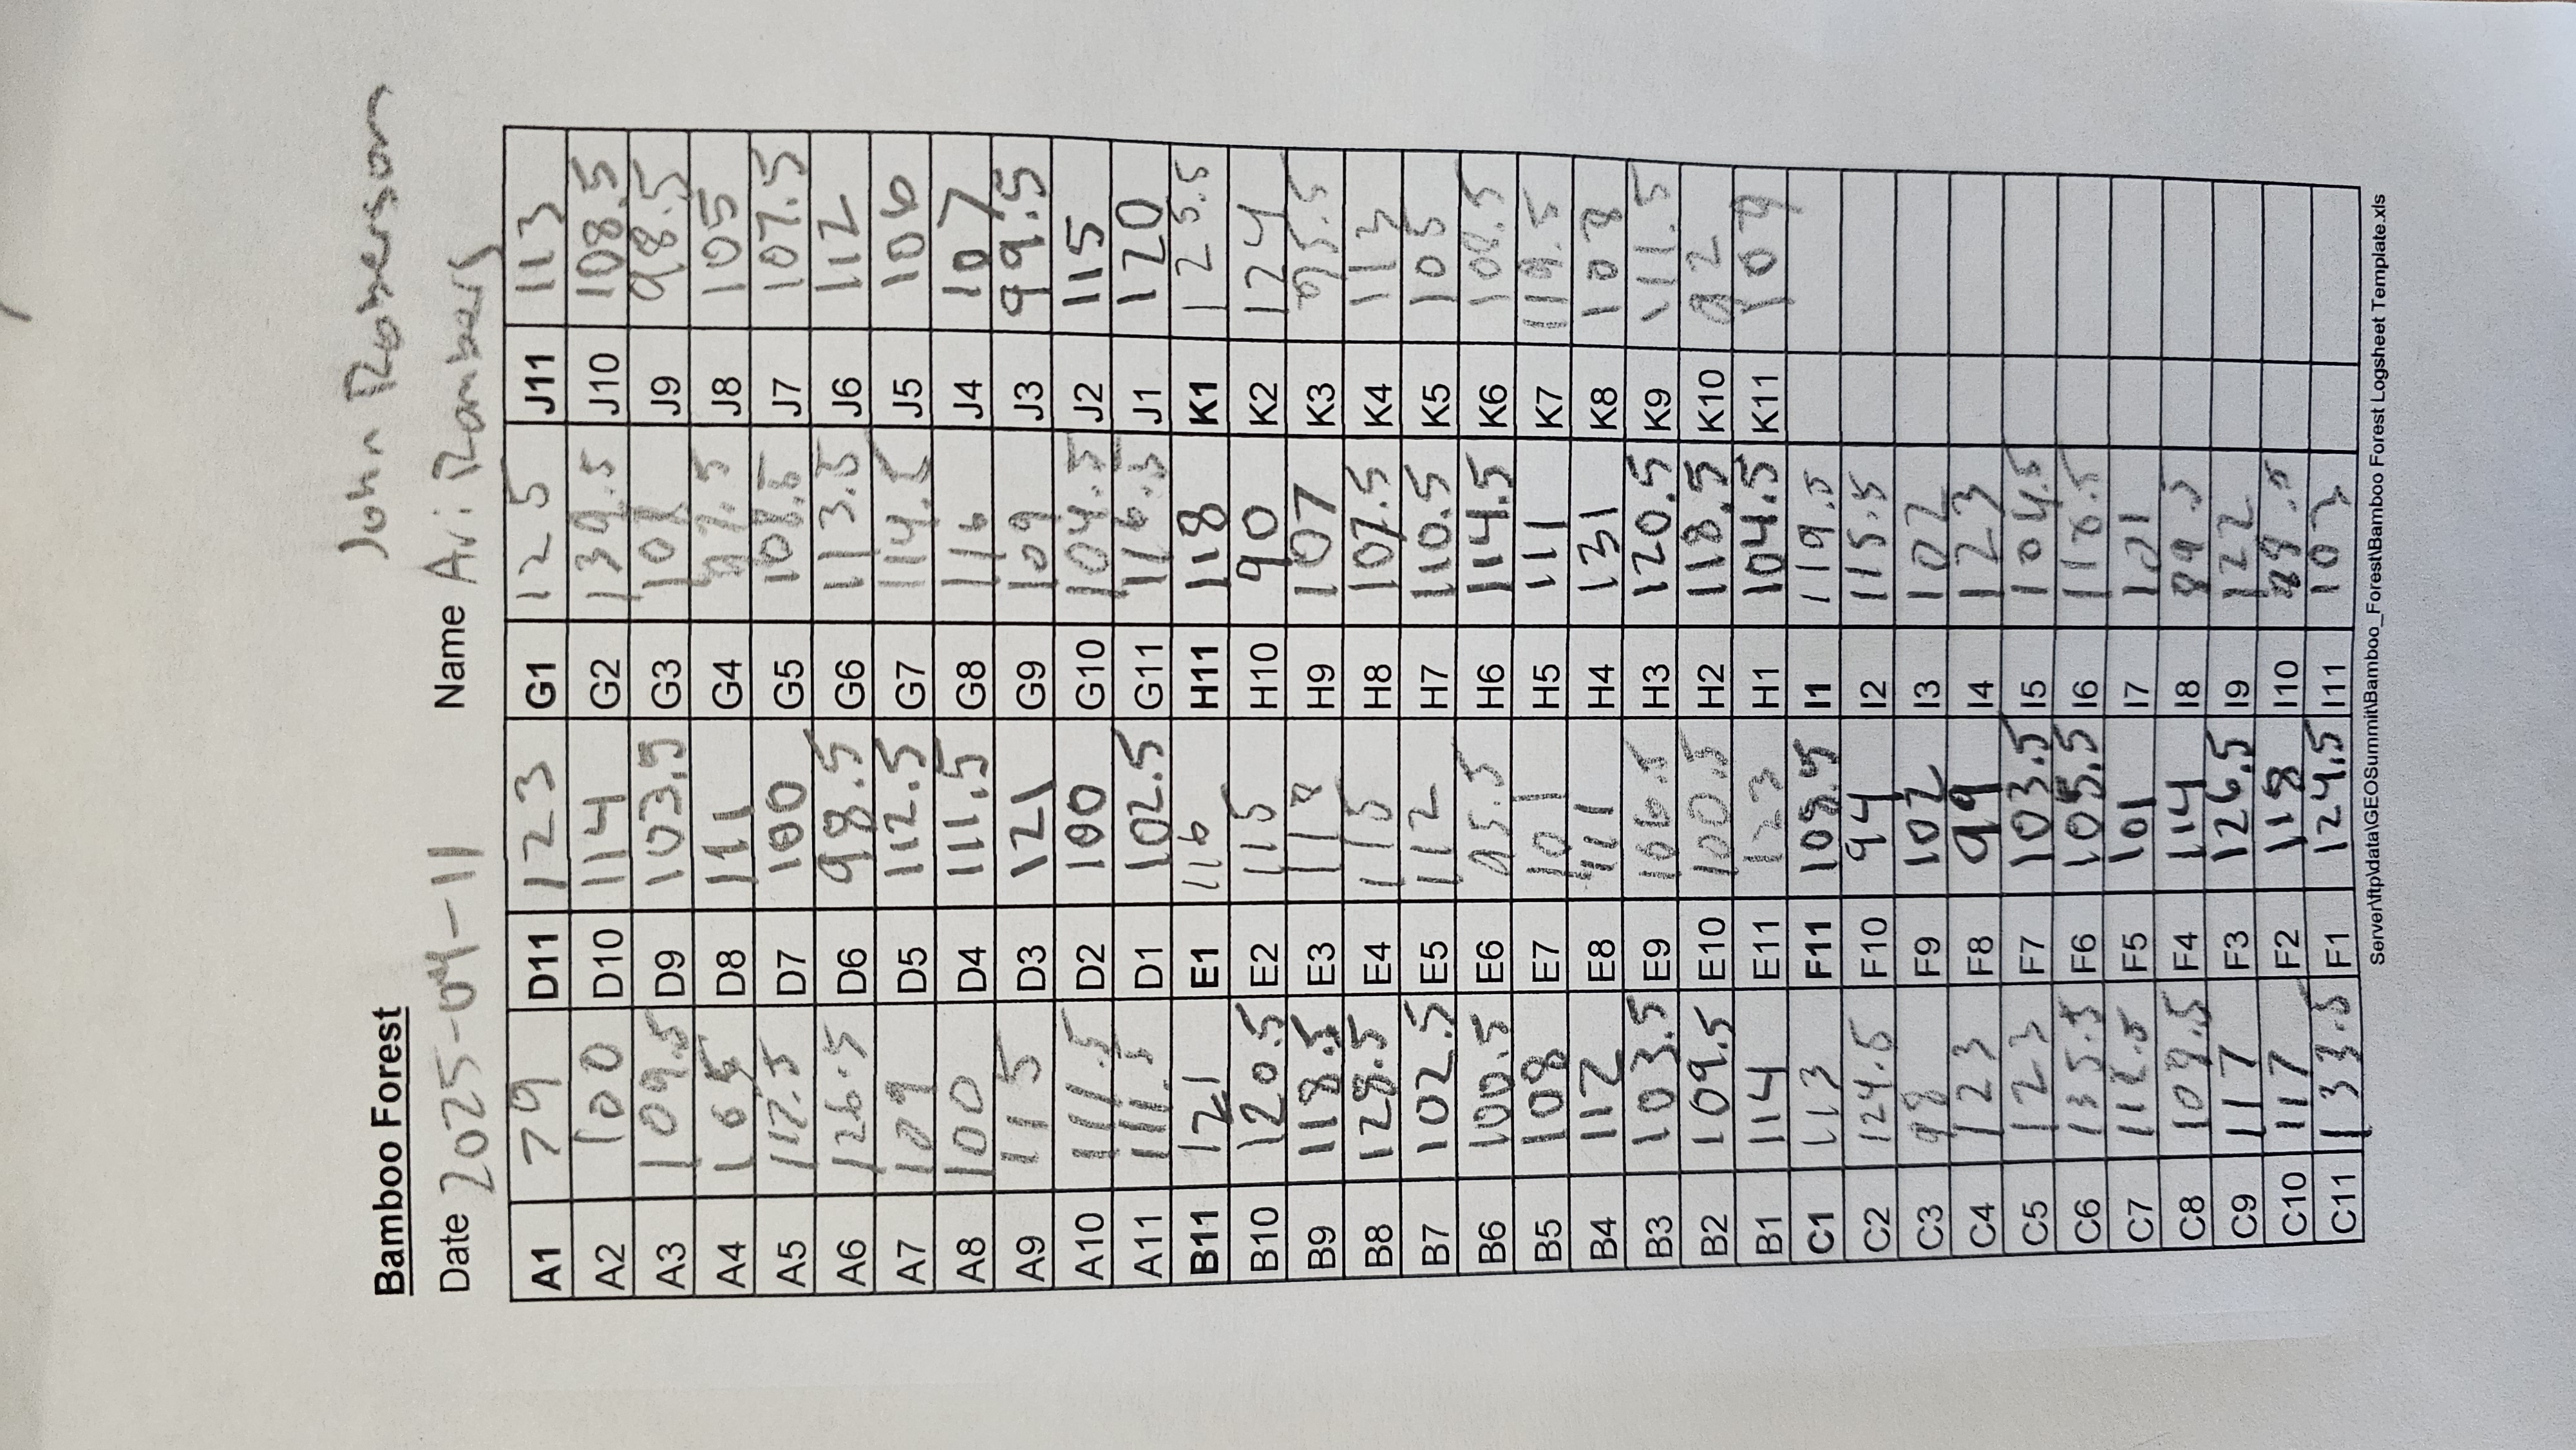 John Roberson
Bamboo Forest
Date 2025-04-11 Name Ari Rambarj
A1 79 D11 123 G1 125 J11 113
A2 100 D10 114 G2 139.5 J10 108.5
A3 109.5 D9 103.5 G3 J9 98.5
A4 D8 111 G4 J8 105
A5 117.5 D7 100 G5 108.5 J7 107.5
A6 126.5 D6 98.5 G6 113.5 J6 112
A7 109 D5 112.5 G7 J5 106
A8 100 D4 111.5 G8 116 J4 107
A9 115 D3 121 G9 109 J3 99.5
A10 111.5 D2 100 G10 104.5 J2 115
A11 111.5 D1 102.5 G11 116.5 J1 120
B11 121 E1 116 H11 118 K1 125.5
B10 120.5 E2 115 H10 90 K2 124
B9 118.5 E3 118 H9 107 K3 95.5
B8 128.5 E4 115 H8 107.5 K4 113
B7 102.5 E5 112 H7 110.5 K5 105
B6 100.5 E6 95.5 H6 114.5 K6 108.5
B5 108 E7 101 H5 111 K7 119.5
B4 112 E8 111 H4 131 K8 108
B3 103.5 E9 106.5 H3 120.5 K9 111.5
B2 109.5 E10 100.5 H2 118.5 K10 92
B1 114 E11 123 H1 104.5 K11 107
C1 113 F11 108.5 I1 119.5
C2 124.5 F10 94 I2 115.5
C3 98 F9 102 I3 102
C4 123 F8 99 I4 123
C5 123 F7 103.5 I5 104.5
C6 135.5 F6 105.5 I6 118.5
C7 112.5 F5 101 I7 101
C8 109.5 F4 114 I8 89.5
C9 117 F3 126.5 I9 122
C10 117 F2 118 I10 89.5
C11 133.5 F1 124.5 I11 103
Server\ftp\data\GEOSummit\Bamboo_Forest\Bamboo Forest Logsheet Template.xls